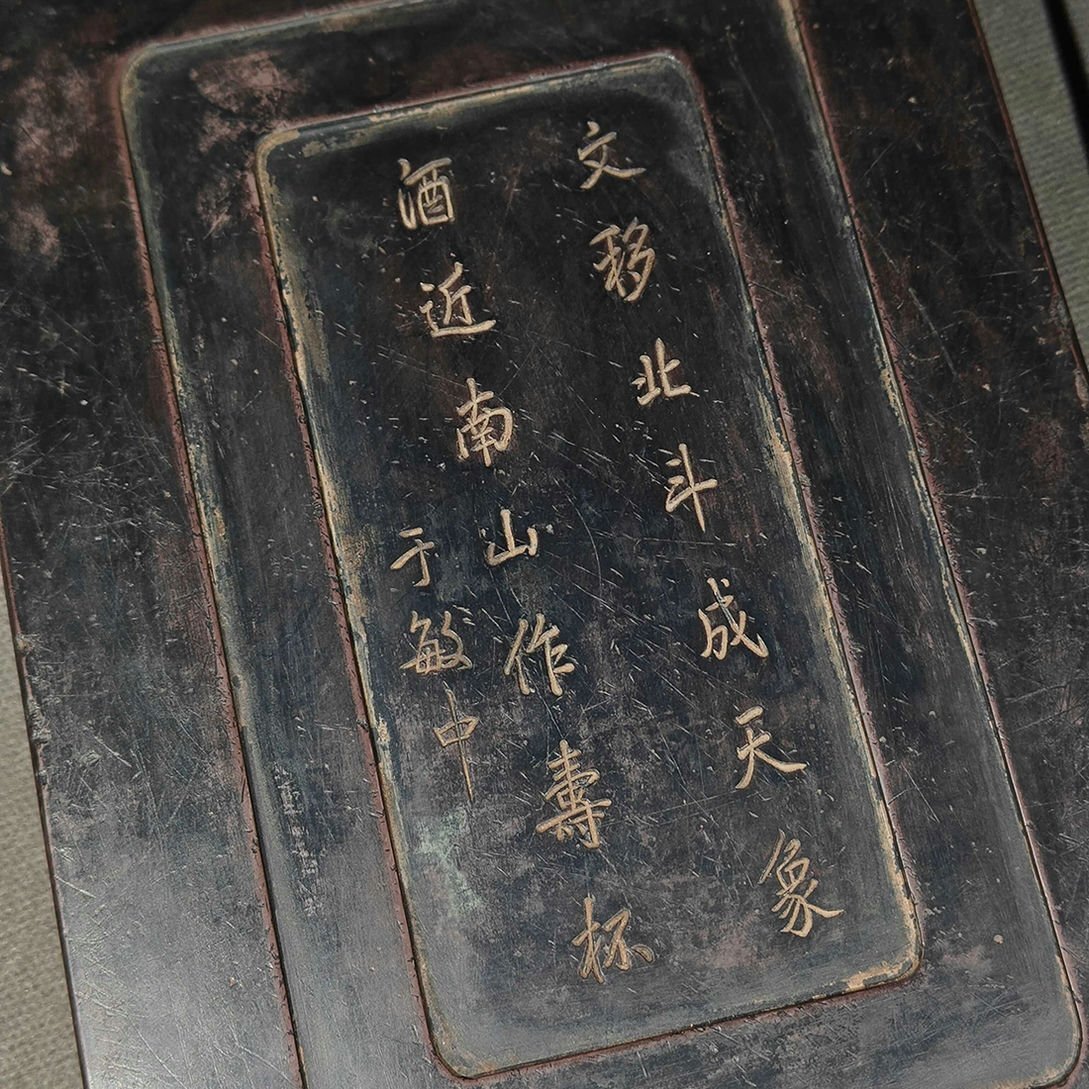 文移北斗成天象
酒近南山作壽杯
于敏中